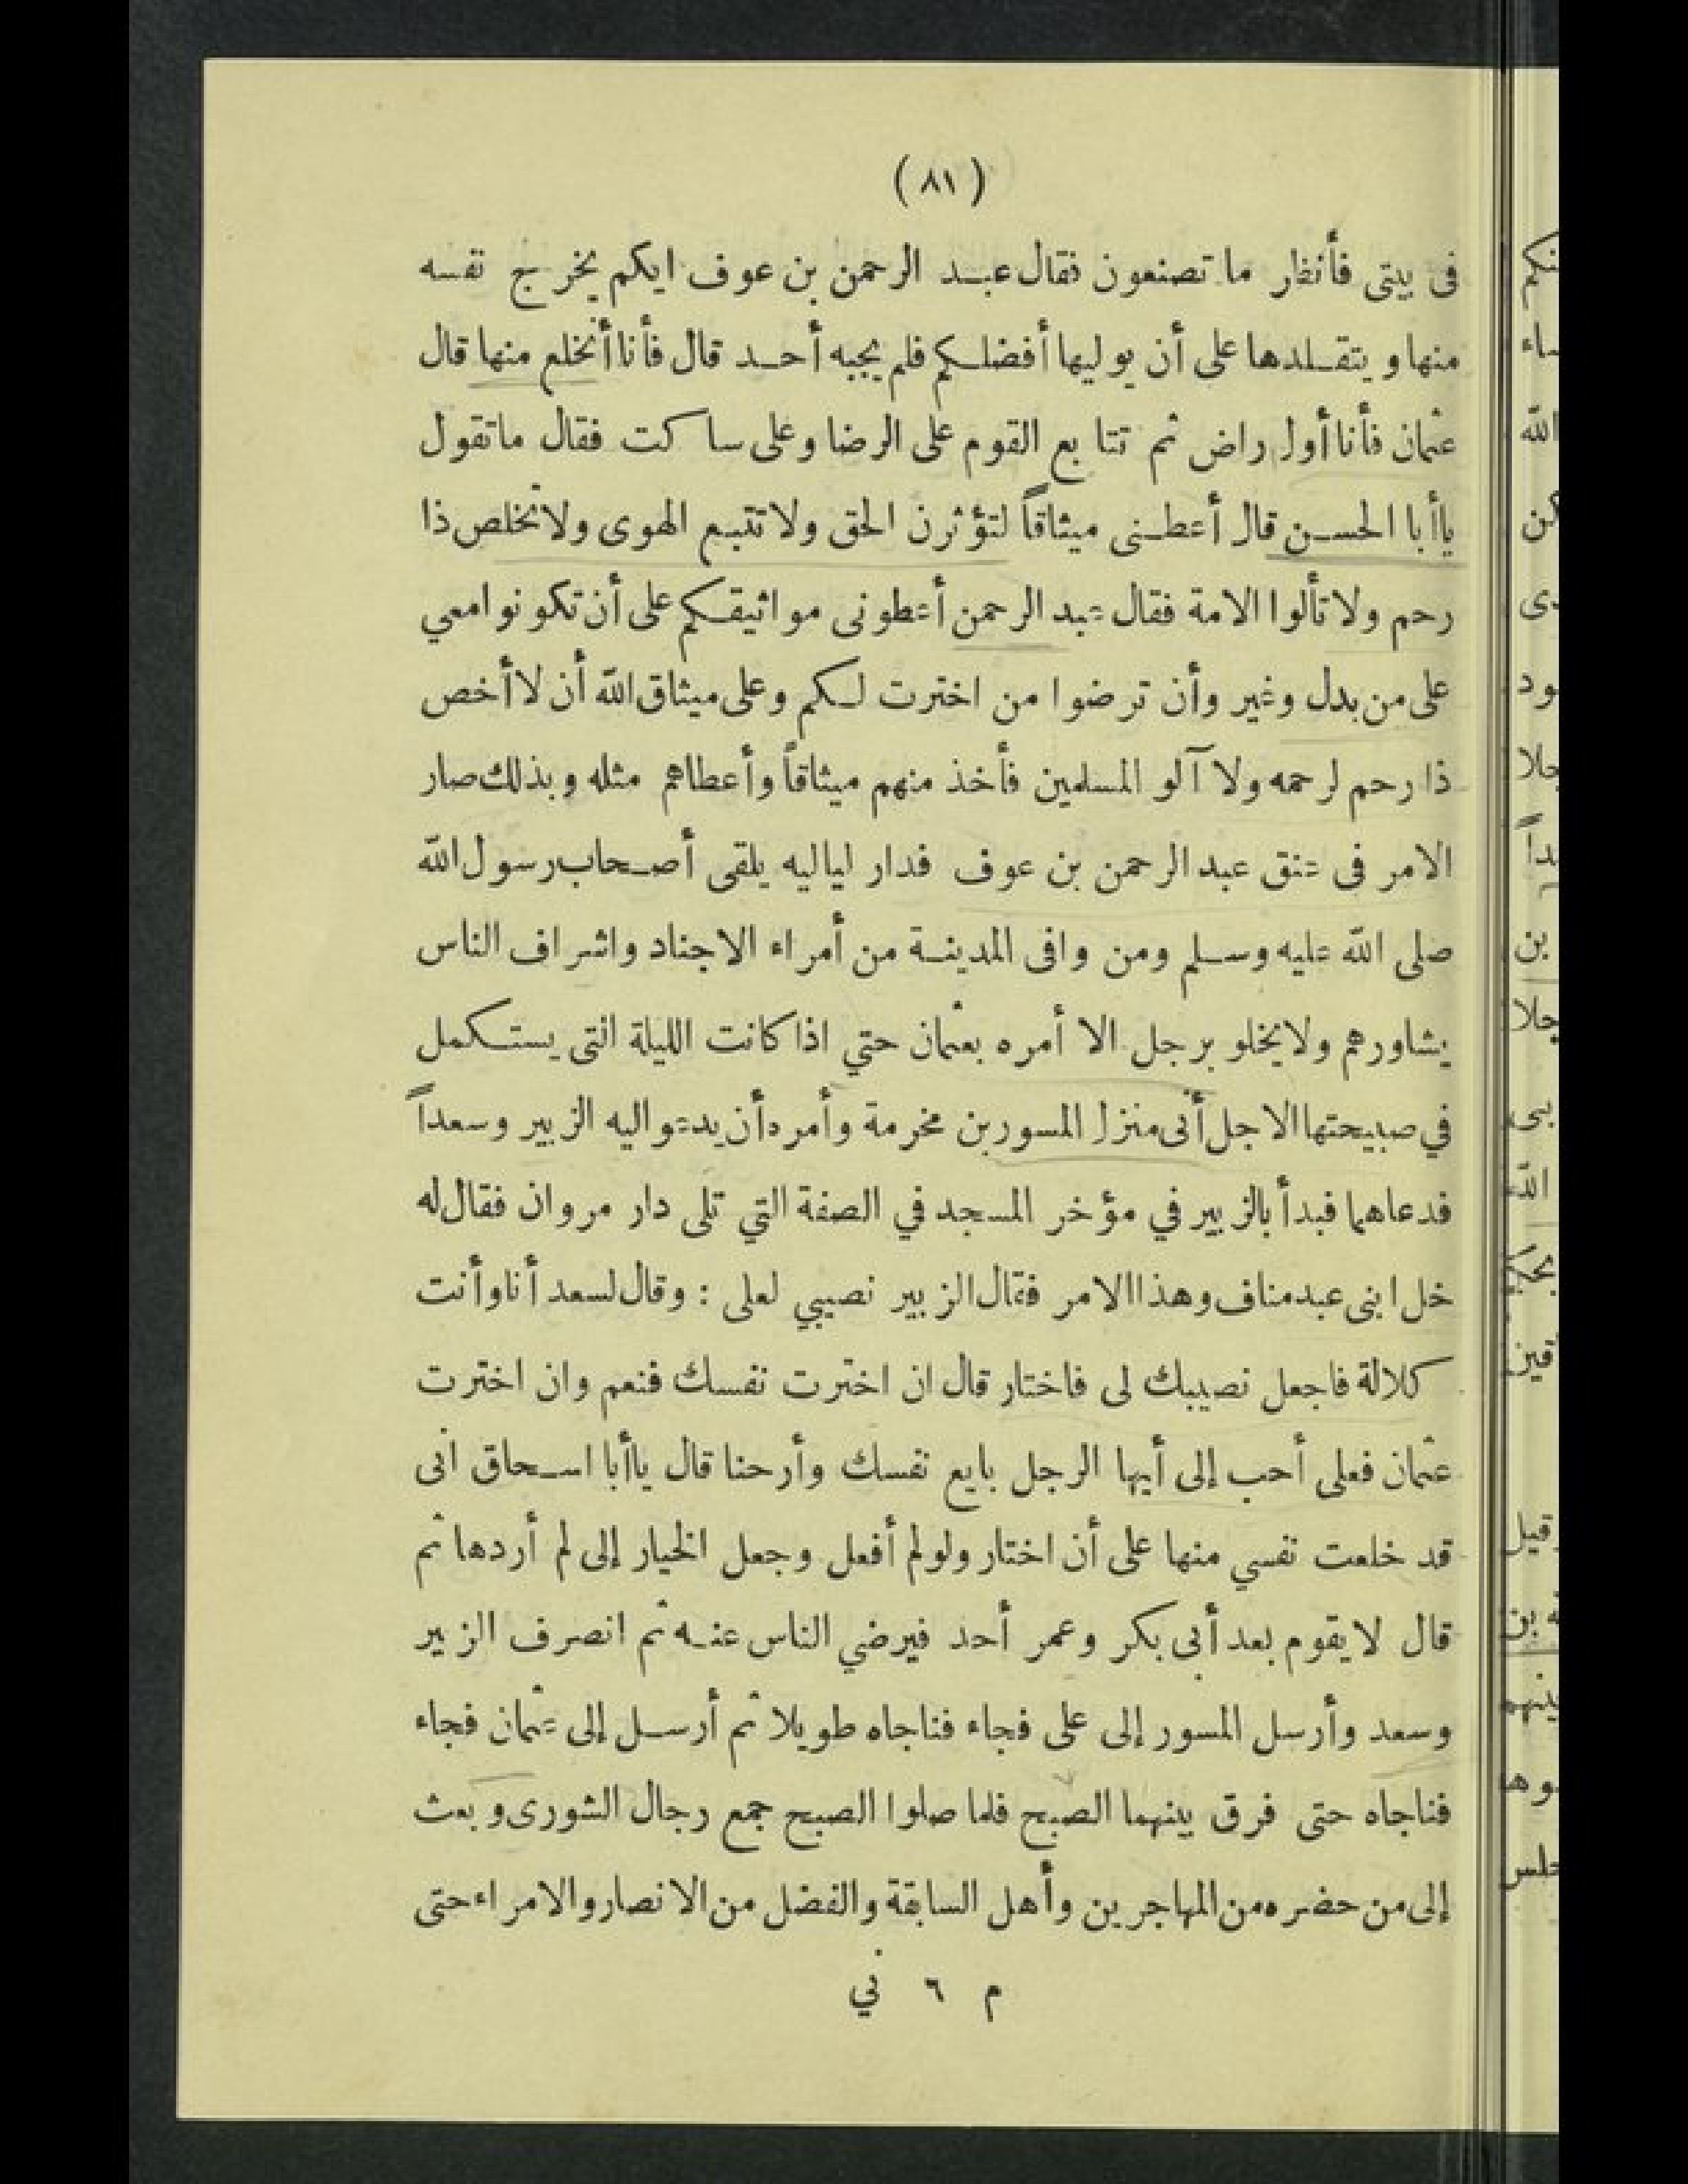 (٨١)
فى بيتى فأنظر ما تصنعون فقال عبد الرحمن بن عوف ايكم يخرج نفسه
منها ويتقلدها على أن يوليها أفضلكم فلم يجبه أحد قال فأنا أنخلع منها قال
عثمان فأنا أول راض ثم تتابع القوم على الرضا وعلى ساكت فقال ما تقول
يا أبا الحسن قال أعطنى ميثاقاً لتؤثرن الحق ولا تتبع الهوى ولا تخلص ذا
رحم ولا تألوا الامة فقال عبد الرحمن أعطونى مواثيقكم على أن تكونوا معي
على من بدل وغير وأن ترضوا من اخترت لكم وعلى ميثاق الله أن لا أخص
ذا رحم لرحمه ولا آلو المسلمين فأخذ منهم ميثاقاً وأعطاهم مثله وبذلك صار
الامر فى عنق عبد الرحمن بن عوف فدار لياليه يلقى أصحاب رسول الله
صلى الله عليه وسلم ومن وافى المدينة من أمراء الاجناد واشراف الناس
يشاورهم ولا يخلو برجل الا أمره بعثمان حتي اذا كانت الليلة التى يستكمل
في صبيحتها الاجل أتى منزل المسور بن مخرمة وأمره أن يدعو اليه الزبير وسعداً
فدعاهما فبدأ بالزبير في مؤخر المسجد في الصفة التي تلى دار مروان فقال له
خل ابنى عبد مناف وهذا الامر فقال الزبير نصيبي لعلى : وقال لسعد أنا وأنت
كلالة فاجعل نصيبك لى فاختار قال ان اخترت نفسك فنعم وان اخترت
عثمان فعلى أحب إلى أيها الرجل بايع نفسك وأرحنا قال يا أبا اسحاق انى
قد خلعت نفسي منها على أن اختار ولو لم أفعل وجعل الخيار إلى لم أردها ثم
قال لا يقوم بعد أبى بكر وعمر أحد فيرضي الناس عنه ثم انصرف الزبير
وسعد وأرسل المسور إلى على فجاء فناجاه طويلا ثم أرسل إلى عثمان فجاء
فناجاه حتى فرق بينهما الصبح فلما صلوا الصبح جمع رجال الشورى وبعث
إلى من حضره من المهاجرين وأهل السابقة والفضل من الانصار والامراء حتى
م ٦ ني